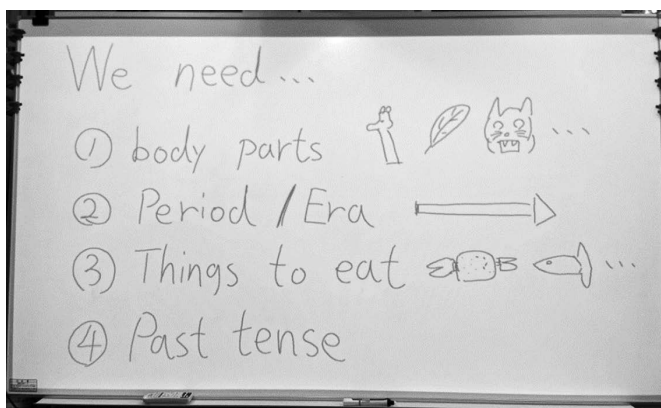 We need...
① body parts ...
② Period / Era
③ Things to eat ...
④ Past tense